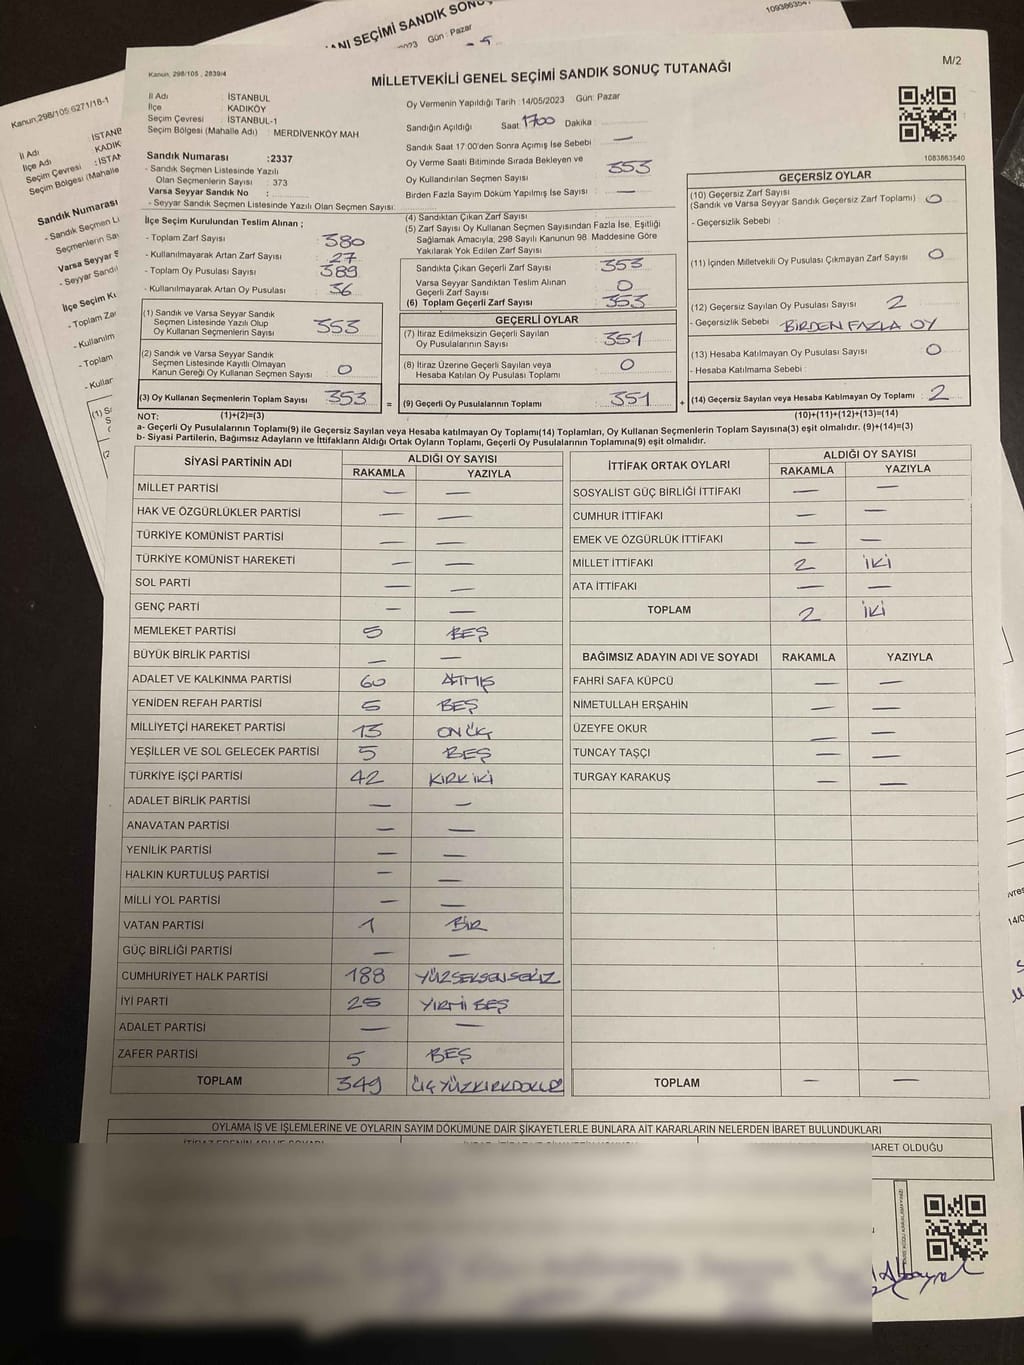 ANI SEÇİMİ SANDIK SONU
Gün : Pazar
Kanun,298/105,6271/18-1
İl Adı : İSTANB
İlçe Adı : KADIK
Seçim Çevresi : İSTAN
Seçim Bölgesi (Mahalle
Sandık Numarası
Kanun, 298/105 , 2839/4
M/2
MİLLETVEKİLİ GENEL SEÇİMİ SANDIK SONUÇ TUTANAĞI
İl Adı : İSTANBUL
İlçe : KADIKÖY
Seçim Çevresi : İSTANBUL-1
Seçim Bölgesi (Mahalle Adı) : MERDİVENKÖY MAH
Oy Vermenin Yapıldığı Tarih :14/05/2023 Gün: Pazar
Sandığın Açıldığı Saat 1700 Dakika :
Sandık Saat 17:00'den Sonra Açımış İse Sebebi : —
Oy Verme Saati Bitiminde Sırada Bekleyen ve
Oy Kullandırılan Seçmen Sayısı : 353
Birden Fazla Sayım Döküm Yapılmış İse Sayısı : —
1083863540
Sandık Numarası :2337
- Sandık Seçmen Listesinde Yazılı
Olan Seçmenlerin Sayısı : 373
Varsa Seyyar Sandık No :
- Seyyar Sandık Seçmen Listesinde Yazılı Olan Seçmen Sayısı:
İlçe Seçim Kurulundan Teslim Alınan ;
- Toplam Zarf Sayısı : 380
- Kullanılmayarak Artan Zarf Sayısı : 27
- Toplam Oy Pusulası Sayısı : 389
- Kullanılmayarak Artan Oy Pusulası : 36
(1) Sandık ve Varsa Seyyar Sandık
Seçmen Listesinde Yazılı Olup
Oy Kullanan Seçmenlerin Sayısı : 353
(2) Sandık ve Varsa Seyyar Sandık
Seçmen Listesinde Kayıtlı Olmayan
Kanun Gereği Oy Kullanan Seçmen Sayısı : 0
(3) Oy Kullanan Seçmenlerin Toplam Sayısı : 353 =
(4) Sandıktan Çıkan Zarf Sayısı :
(5) Zarf Sayısı Oy Kullanan Seçmen Sayısından Fazla İse, Eşitliği
Sağlamak Amacıyla, 298 Sayılı Kanunun 98. Maddesine Göre
Yakılarak Yok Edilen Zarf Sayısı :
Sandıkta Çıkan Geçerli Zarf Sayısı : 353
Varsa Seyyar Sandıktan Teslim Alınan
Geçerli Zarf Sayısı : 0
(6) Toplam Geçerli Zarf Sayısı : 353
GEÇERLİ OYLAR
(7) İtiraz Edilmeksizin Geçerli Sayılan
Oy Pusulalarının Sayısı : 351
(8) İtiraz Üzerine Geçerli Sayılan veya
Hesaba Katılan Oy Pusulası Toplamı : 0
(9) Geçerli Oy Pusulalarının Toplamı : 351 +
GEÇERSİZ OYLAR
(10) Geçersiz Zarf Sayısı :
(Sandık ve Varsa Seyyar Sandık Geçersiz Zarf Toplamı) 0
- Geçersizlik Sebebi :
(11) İçinden Milletvekili Oy Pusulası Çıkmayan Zarf Sayısı : 0
(12) Geçersiz Sayılan Oy Pusulası Sayısı : 2
- Geçersizlik Sebebi : BİRDEN FAZLA OY
(13) Hesaba Katılmayan Oy Pusulası Sayısı : 0
- Hesaba Katılmama Sebebi :
(14) Geçersiz Sayılan veya Hesaba Katılmayan Oy Toplamı : 2
NOT: (1)+(2)=(3) (10)+(11)+(12)+(13)=(14)
a- Geçerli Oy Pusulalarının Toplamı(9) ile Geçersiz Sayılan veya Hesaba katılmayan Oy Toplamı(14) Toplamları, Oy Kullanan Seçmenlerin Toplam Sayısına(3) eşit olmalıdır. (9)+(14)=(3)
b- Siyasi Partilerin, Bağımsız Adayların ve İttifakların Aldığı Ortak Oyların Toplamı, Geçerli Oy Pusulalarının Toplamına(9) eşit olmalıdır.
SİYASİ PARTİNİN ADI ALDIĞI OY SAYISI
RAKAMLA YAZIYLA
MİLLET PARTİSİ — —
HAK VE ÖZGÜRLÜKLER PARTİSİ — —
TÜRKİYE KOMÜNİST PARTİSİ — —
TÜRKİYE KOMÜNİST HAREKETİ — —
SOL PARTİ — —
GENÇ PARTİ — —
MEMLEKET PARTİSİ 5 BEŞ
BÜYÜK BİRLİK PARTİSİ — —
ADALET VE KALKINMA PARTİSİ 60 ALTMIŞ
YENİDEN REFAH PARTİSİ 5 BEŞ
MİLLİYETÇİ HAREKET PARTİSİ 13 ONÜÇ
YEŞİLLER VE SOL GELECEK PARTİSİ 5 BEŞ
TÜRKİYE İŞÇİ PARTİSİ 42 KIRKİKİ
ADALET BİRLİK PARTİSİ — —
ANAVATAN PARTİSİ — —
YENİLİK PARTİSİ — —
HALKIN KURTULUŞ PARTİSİ — —
MİLLİ YOL PARTİSİ — —
VATAN PARTİSİ 1 BİR
GÜÇ BİRLİĞİ PARTİSİ — —
CUMHURİYET HALK PARTİSİ 188 YÜZSEKSENSEKİZ
İYİ PARTİ 25 YİRMİ BEŞ
ADALET PARTİSİ — —
ZAFER PARTİSİ 5 BEŞ
TOPLAM 349 ÜÇYÜZKIRKDOKUZ
İTTİFAK ORTAK OYLARI ALDIĞI OY SAYISI
RAKAMLA YAZIYLA
SOSYALİST GÜÇ BİRLİĞİ İTTİFAKI — —
CUMHUR İTTİFAKI — —
EMEK VE ÖZGÜRLÜK İTTİFAKI — —
MİLLET İTTİFAKI 2 İKİ
ATA İTTİFAKI — —
TOPLAM 2 İKİ
BAĞIMSIZ ADAYIN ADI VE SOYADI RAKAMLA YAZIYLA
FAHRİ SAFA KÜPCÜ — —
NİMETULLAH ERŞAHİN — —
ÜZEYFE OKUR — —
TUNCAY TAŞÇI — —
TURGAY KARAKUŞ — —
TOPLAM — —
OYLAMA İŞ VE İŞLEMLERİNE VE OYLARIN SAYIM DÖKÜMÜNE DAİR ŞİKAYETLERLE BUNLARA AİT KARARLARIN NELERDEN İBARET BULUNDUKLARI
BARET OLDUĞU